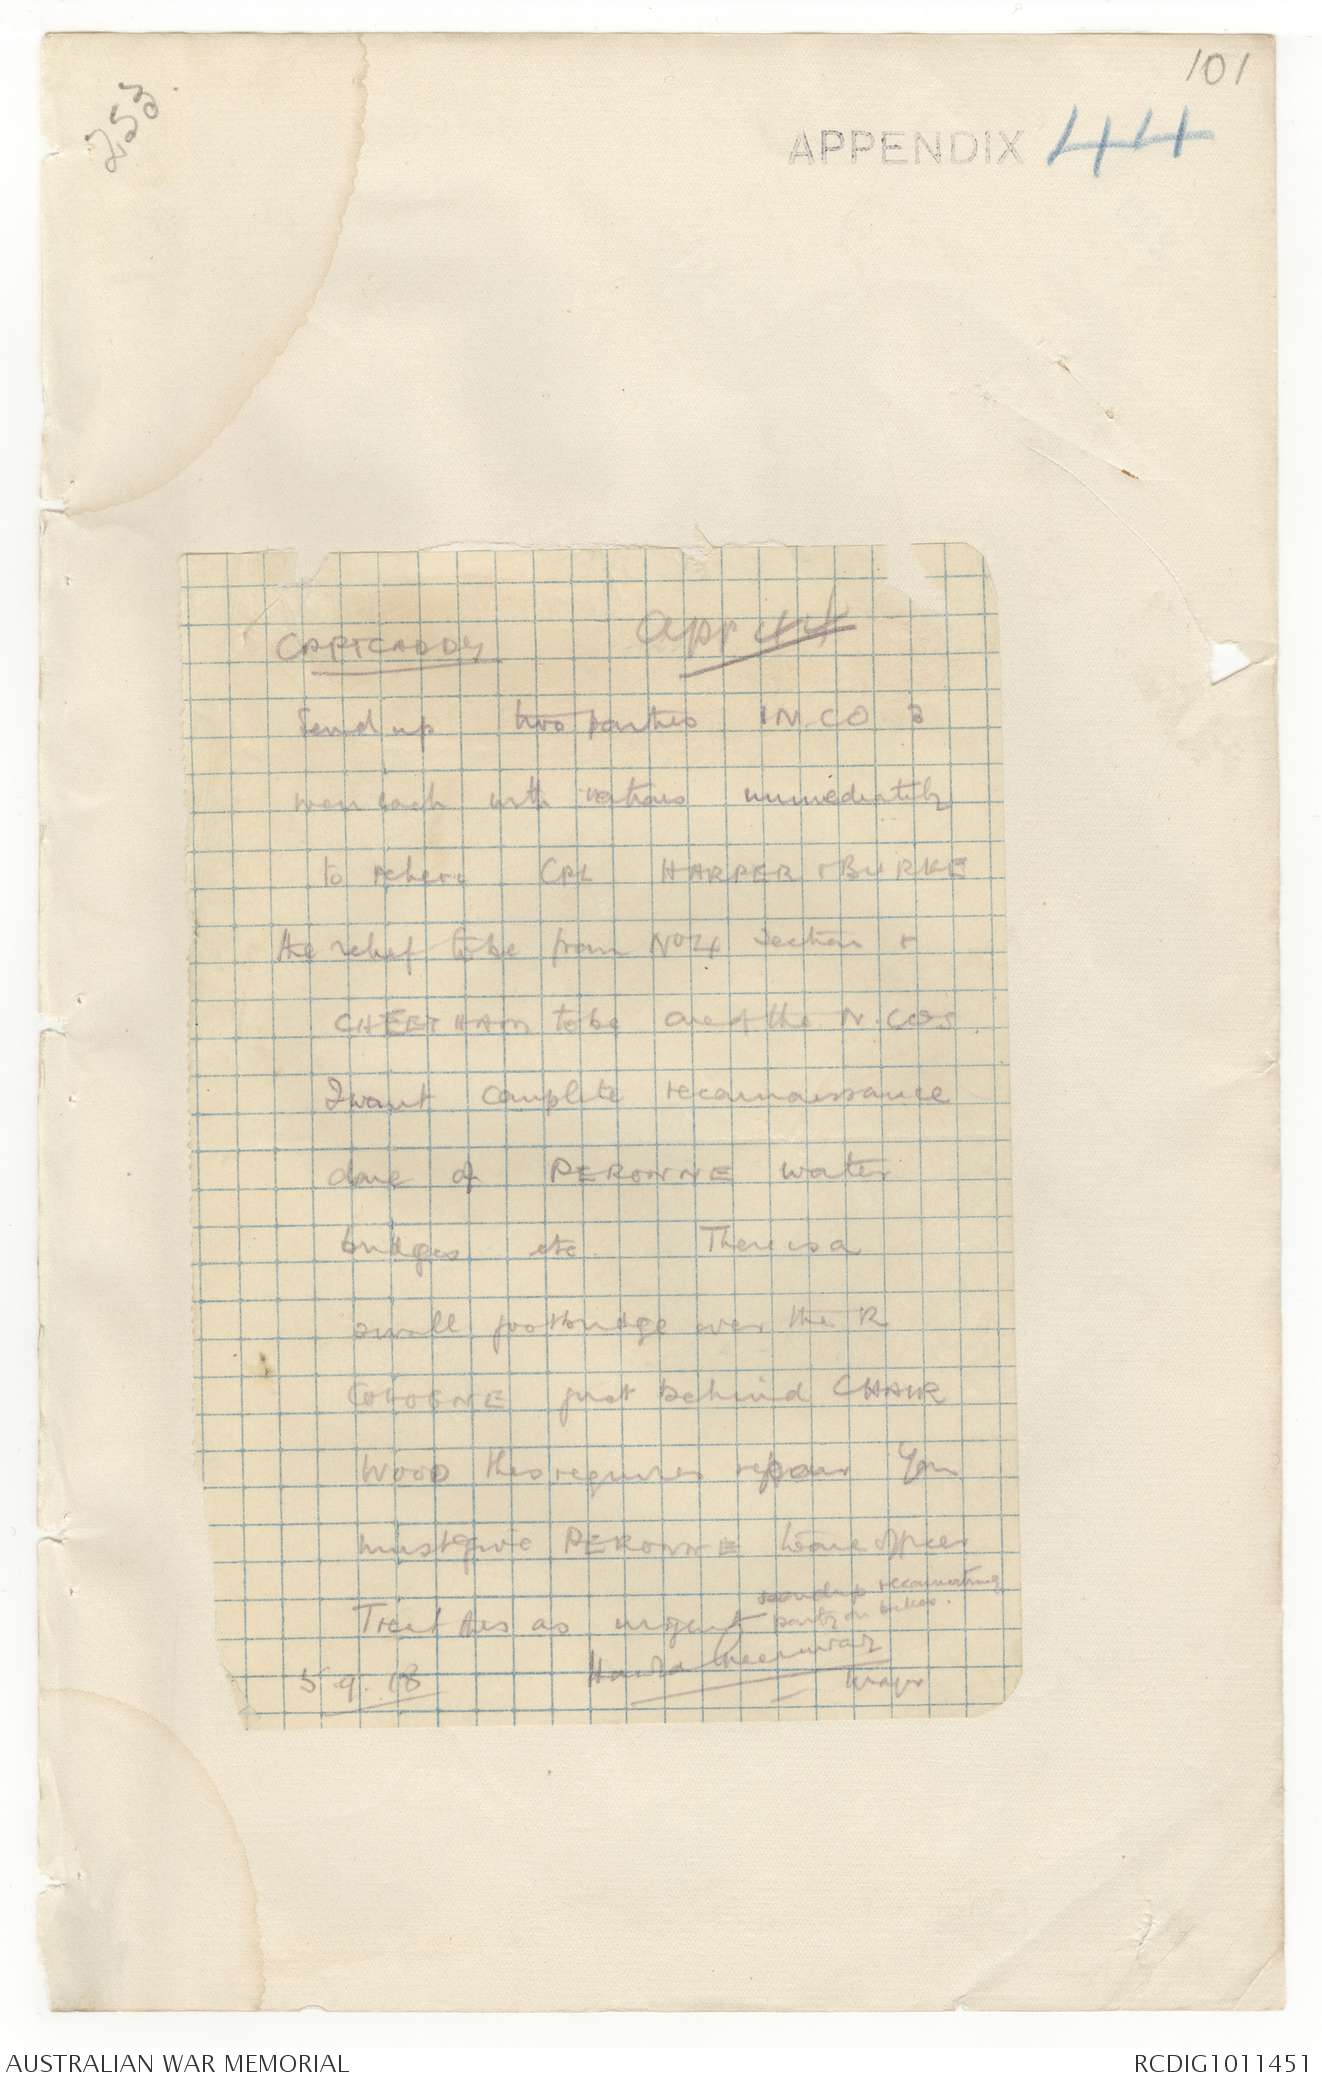 253.
101
APPENDIX 44
CAPT CADDY
App 44
Send up two parties 1 N.CO 3
men each with rations immediately
to relieve CPL HARPER & BURKE
the relief to be from No 4 section &
CHEETHAM to be one of the N.COs
I want complete reconnaissance
done of PERONNE water
bridges etc. There is a
small footbridge over the R
COLOGNE just behind CHAIR
WOOD this requires repair You
must give PERONNE to one officer
Treat this as urgent
send up reconnoitring
party on bikes.
5.9.18
Major
AUSTRALIAN WAR MEMORIAL
RCDIG1011451